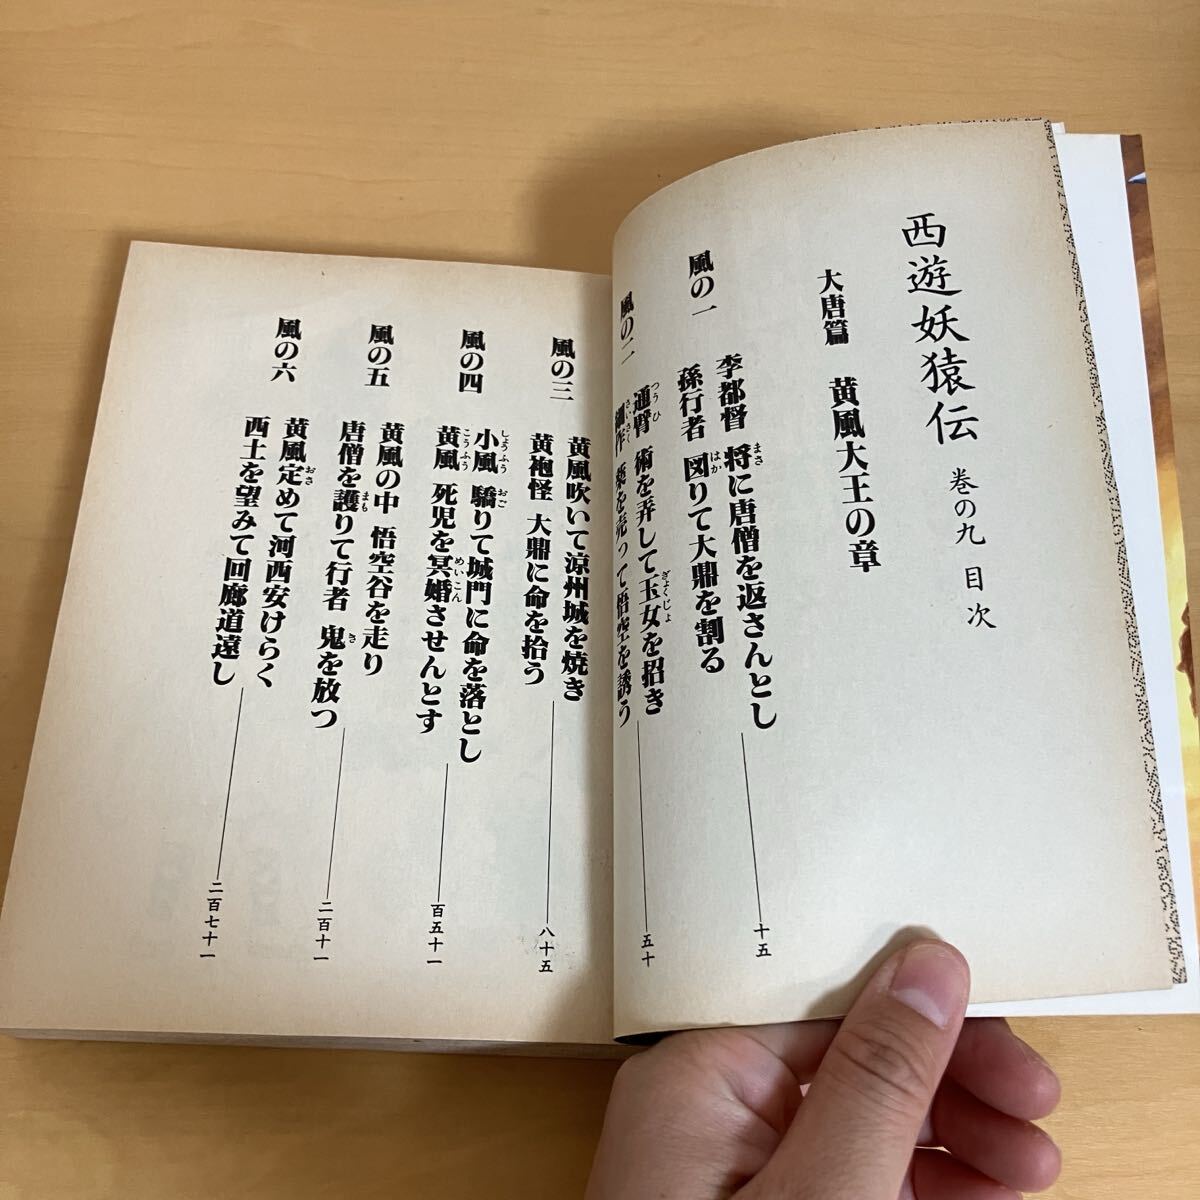 西遊妖猿伝 巻の九 目次
大唐篇 黄風大王の章
風の一
李都督 将に唐僧を返さんとし
孫行者 図りて大鼎を割る
十五
風の二
通臂 術を弄して玉女を招き
細作 薬を売って悟空を誘う
五十
風の三
黄風吹いて涼州城を焼き
黄袍怪 大鼎に命を拾う
八十五
風の四
小風 驕りて城門に命を落とし
黄風 死児を冥婚させんとす
百五十一
風の五
黄風の中 悟空谷を走り
唐僧を護りて行者 鬼を放つ
二百十一
風の六
黄風定めて河西安けらく
西土を望みて回廊道遠し
二百七十一